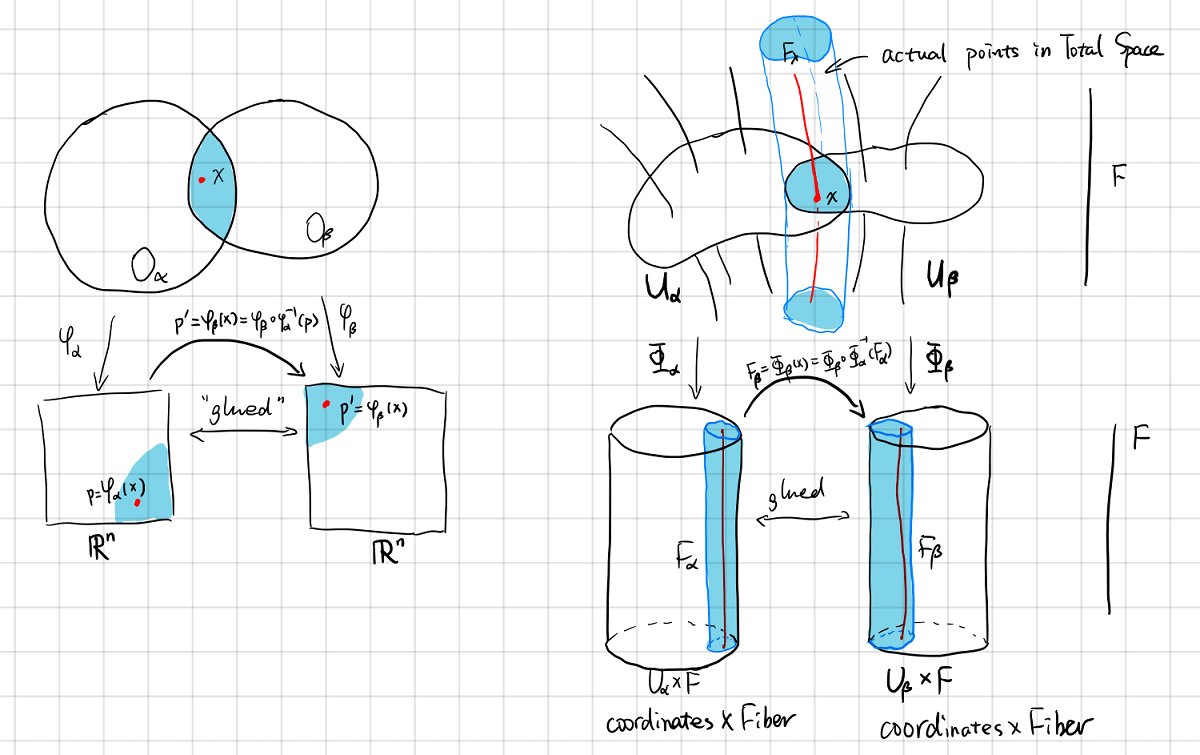 x
O_α
O_β
φ_α
p'=φ_β(x)=φ_β∘φ_α⁻¹(p)
φ_β
"glued"
p'=φ_β(x)
p=φ_α(x)
ℝⁿ
ℝⁿ
F_x
actual points in Total Space
x
F
U_α
U_β
Φ_α
F_β=Φ_β(x)=Φ_β∘Φ_α⁻¹(F_α)
Φ_β
F
glued
F_α
F_β
U_α×F
U_β×F
coordinates × Fiber
coordinates × Fiber